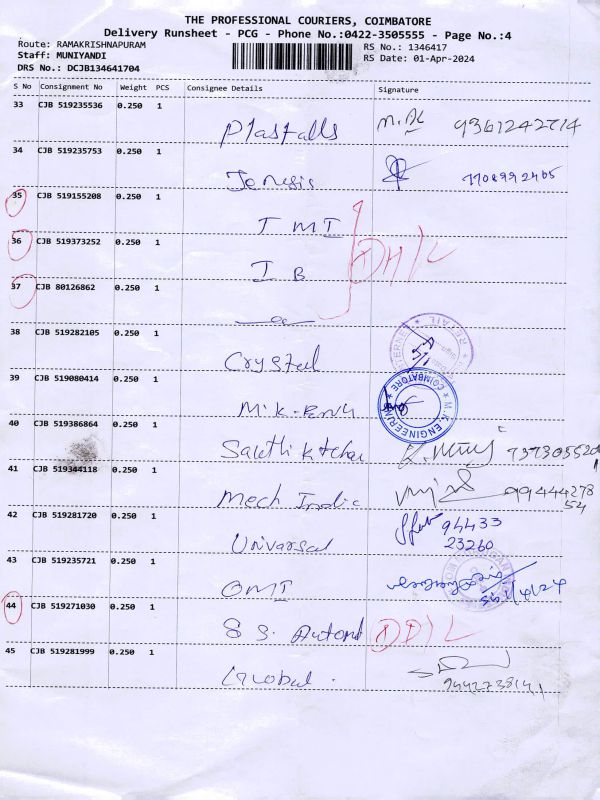 THE PROFESSIONAL COURIERS, COIMBATORE
Delivery Runsheet - PCG - Phone No.:0422-3505555 - Page No.:4
Route: RAMAKRISHNAPURAM
RS No.: 1346417
Staff: MUNIYANDI
RS Date: 01-Apr-2024
DRS No.: DCJB134641704
S No Consignment No Weight PCS Consignee Details Signature
33 CJB 519235536 0.250 1
Plastalls
34 CJB 519235753 0.250 1
Jenesis 7708992405
35 CJB 519155208 0.250 1
TMI
36 CJB 519373252 0.250 1
IB
37 CJB 80126862 0.250 1
D/L
38 CJB 519282105 0.250 1
Crystal
39 CJB 519080414 0.250 1
M.K. ENGINEERING
COIMBATORE
40 CJB 519386864 0.250 1
Sakthi Kitchen
41 CJB 519344118 0.250 1
Mech India 99444278
54
42 CJB 519281720 0.250 1
Universal 94433
23260
43 CJB 519235721 0.250 1
OMI 1/4/24
44 CJB 519271030 0.250 1
S S. Automt D/L
45 CJB 519281999 0.250 1
Global.